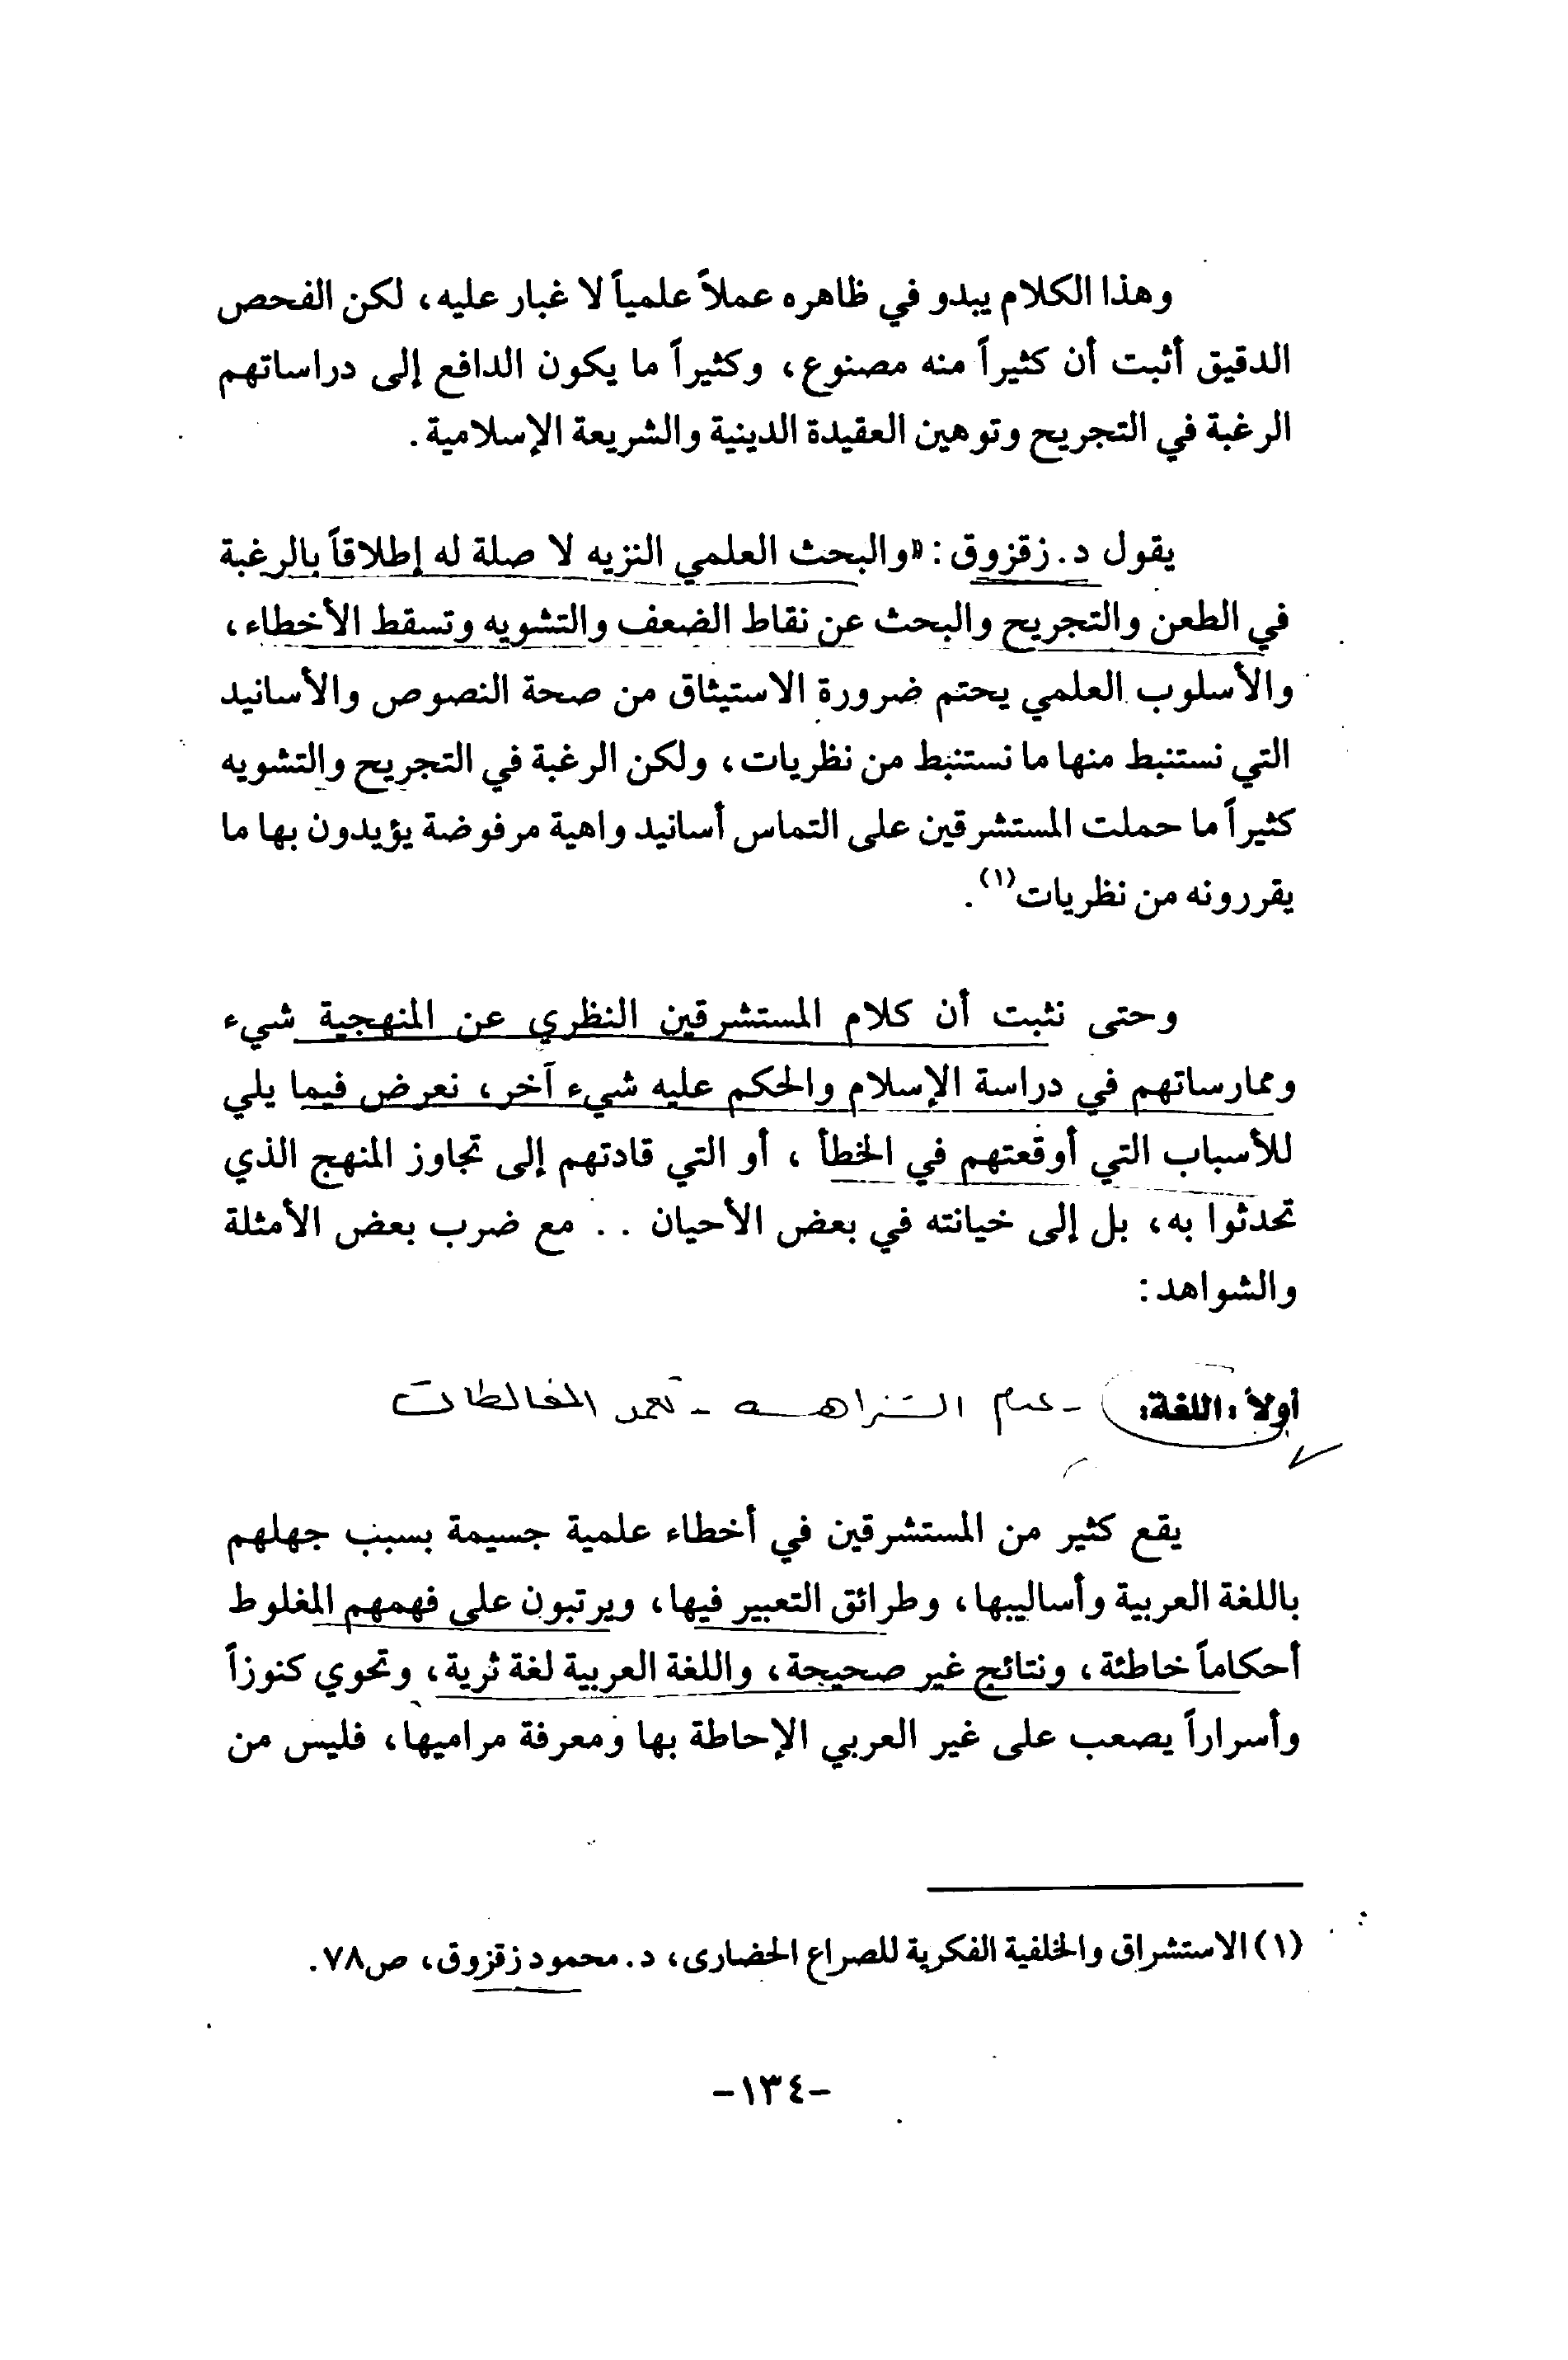 وهذا الكلام يبدو في ظاهره عملاً علمياً لا غبار عليه، لكن الفحص
الدقيق أثبت أن كثيراً منه مصنوع، وكثيراً ما يكون الدافع إلى دراساتهم
الرغبة في التجريح وتوهين العقيدة الدينية والشريعة الإسلامية.
يقول د. زقزوق: «والبحث العلمي النزيه لا صلة له إطلاقاً بالرغبة
في الطعن والتجريح والبحث عن نقاط الضعف والتشويه وتسقط الأخطاء،
والأسلوب العلمي يحتم ضرورة الاستيثاق من صحة النصوص والأسانيد
التي نستنبط منها ما نستنبط من نظريات، ولكن الرغبة في التجريح والتشويه
كثيراً ما حملت المستشرقين على التماس أسانيد واهية مرفوضة يؤيدون بها ما
يقررونه من نظريات(١).
وحتى نثبت أن كلام المستشرقين النظري عن المنهجية شيء
وممارساتهم في دراسة الإسلام والحكم عليه شيء آخر، نعرض فيما يلي
للأسباب التي أوقعتهم في الخطأ ، أو التي قادتهم إلى تجاوز المنهج الذي
تحدثوا به، بل إلى خيانته في بعض الأحيان . . مع ضرب بعض الأمثلة
والشواهد:
أولاً: اللغة: - عدم النزاهه - تعمد المغالطات
يقع كثير من المستشرقين في أخطاء علمية جسيمة بسبب جهلهم
باللغة العربية وأساليبها، وطرائق التعبير فيها، ويرتبون على فهمهم المغلوط
أحكاماً خاطئة، ونتائج غير صحيحة، واللغة العربية لغة ثرية، وتحوي كنوزاً
وأسراراً يصعب على غير العربي الإحاطة بها ومعرفة مراميها، فليس من
(١) الاستشراق والخلفية الفكرية للصراع الحضارى، د. محمود زقزوق، ص٧٨.
-١٣٤-